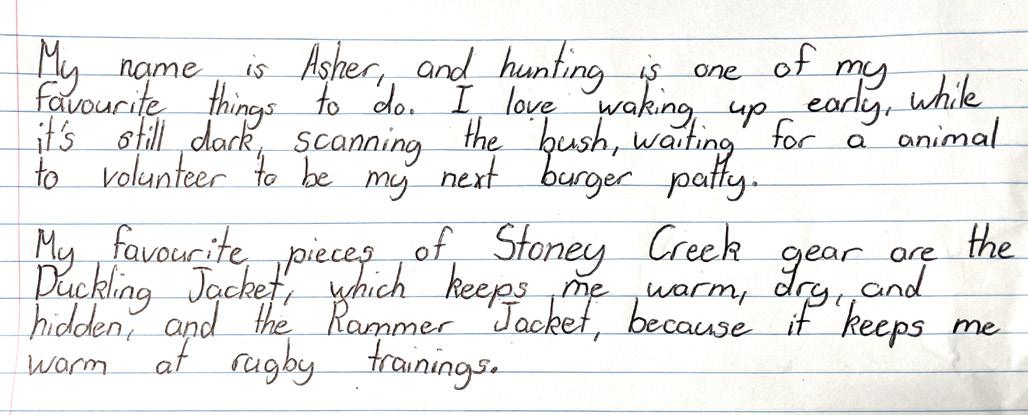 My name is Asher, and hunting is one of my
favourite things to do. I love waking up early, while
it's still dark, scanning the bush, waiting for a animal
to volunteer to be my next burger patty.
My favourite pieces of Stoney Creek gear are the
Duckling Jacket, which keeps me warm, dry, and
hidden, and the Rammer Jacket, because it keeps me
warm at rugby trainings.